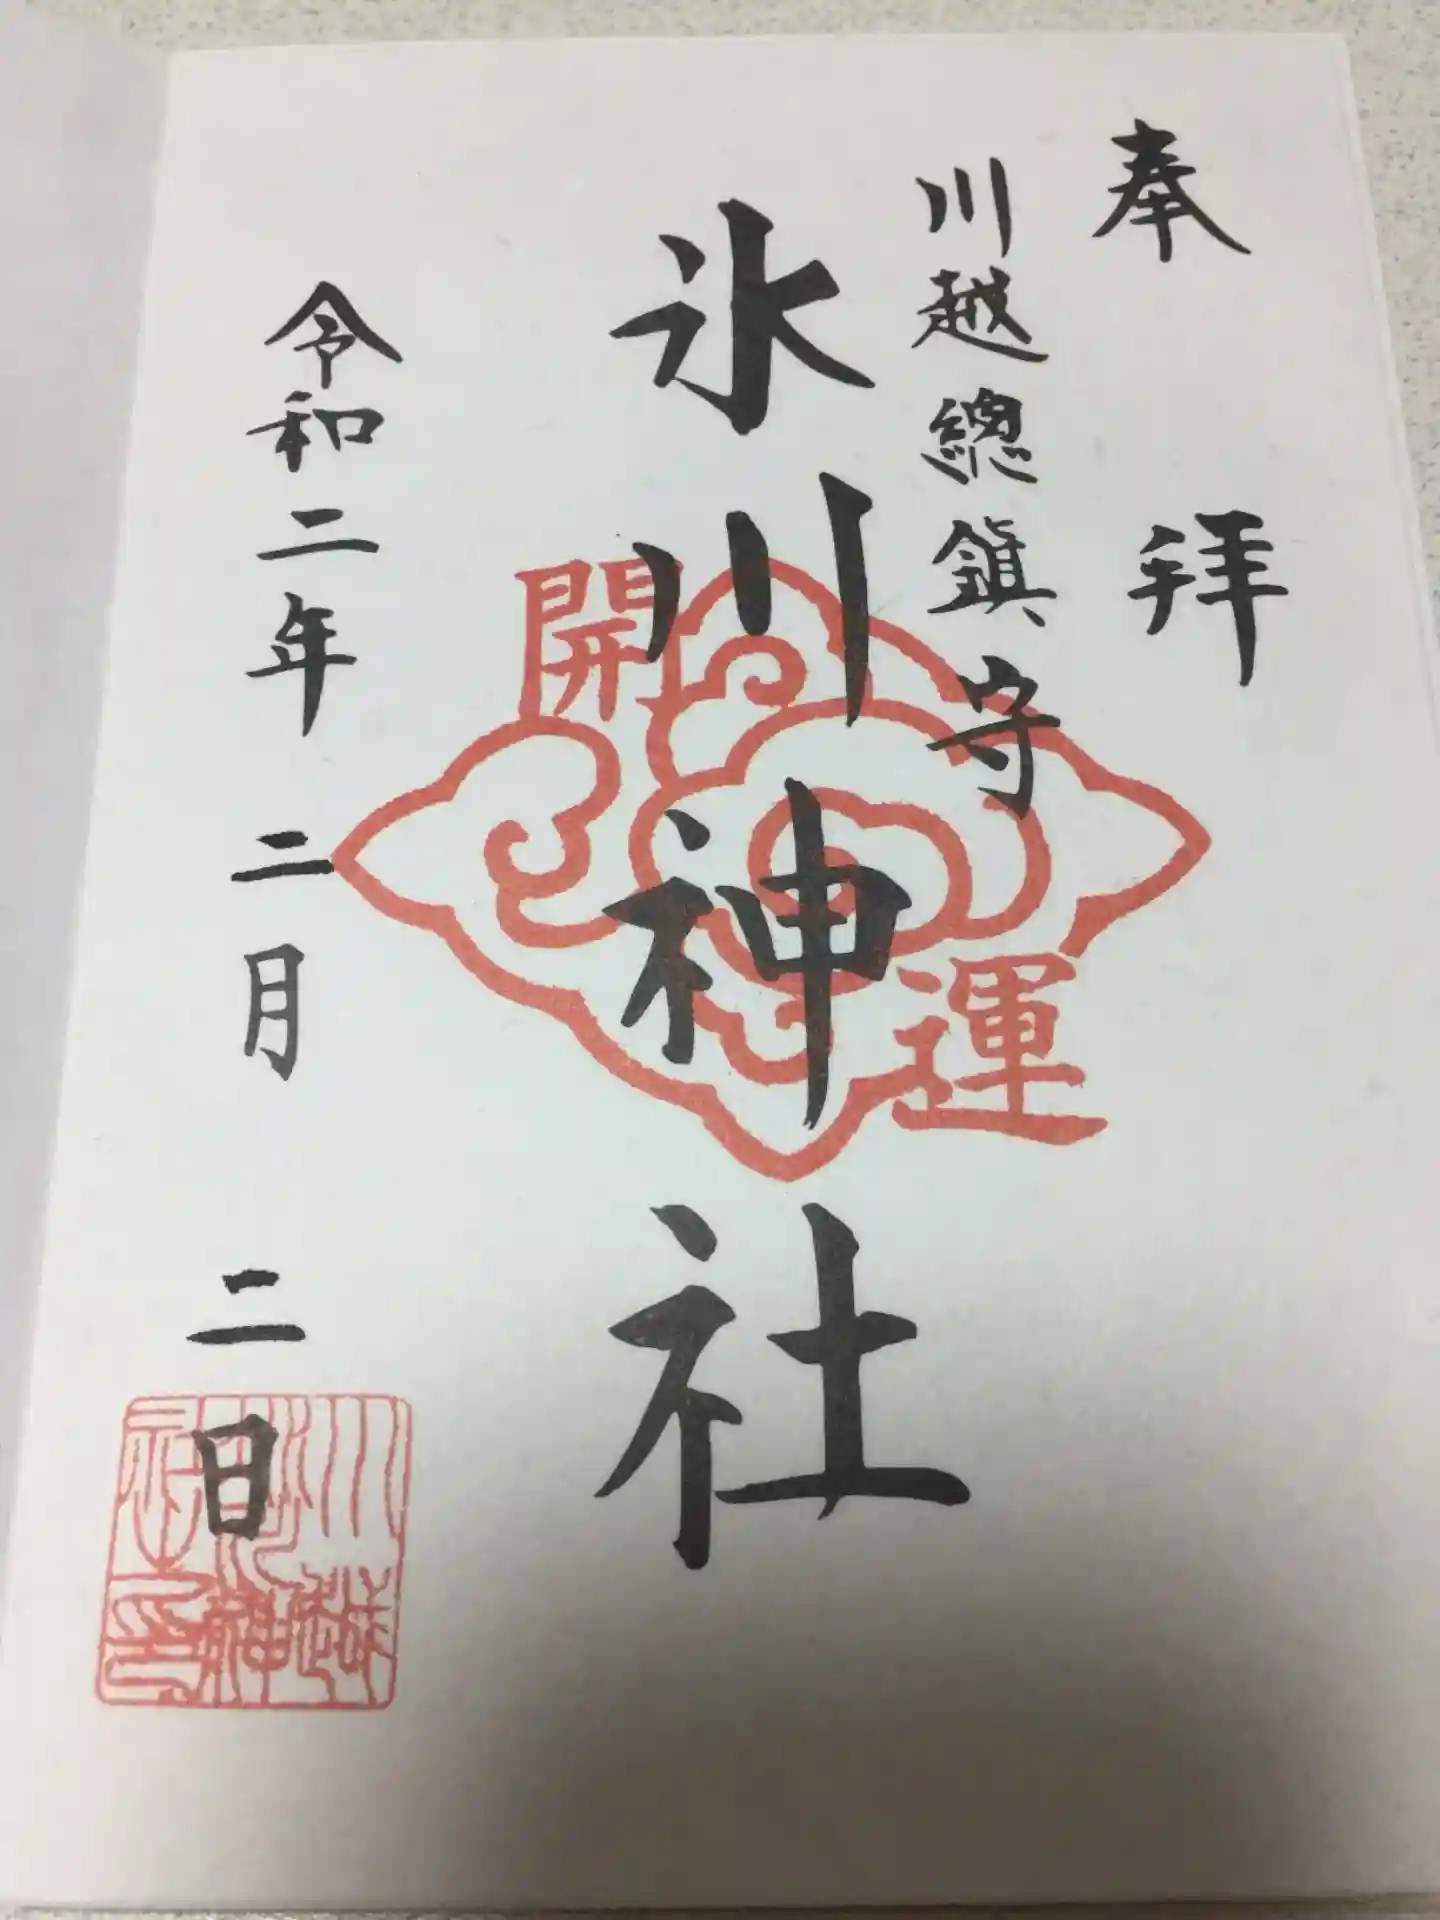 奉拝
川越總鎮守
氷川神社
開運
令和二年二月二日
川越氷川神社印